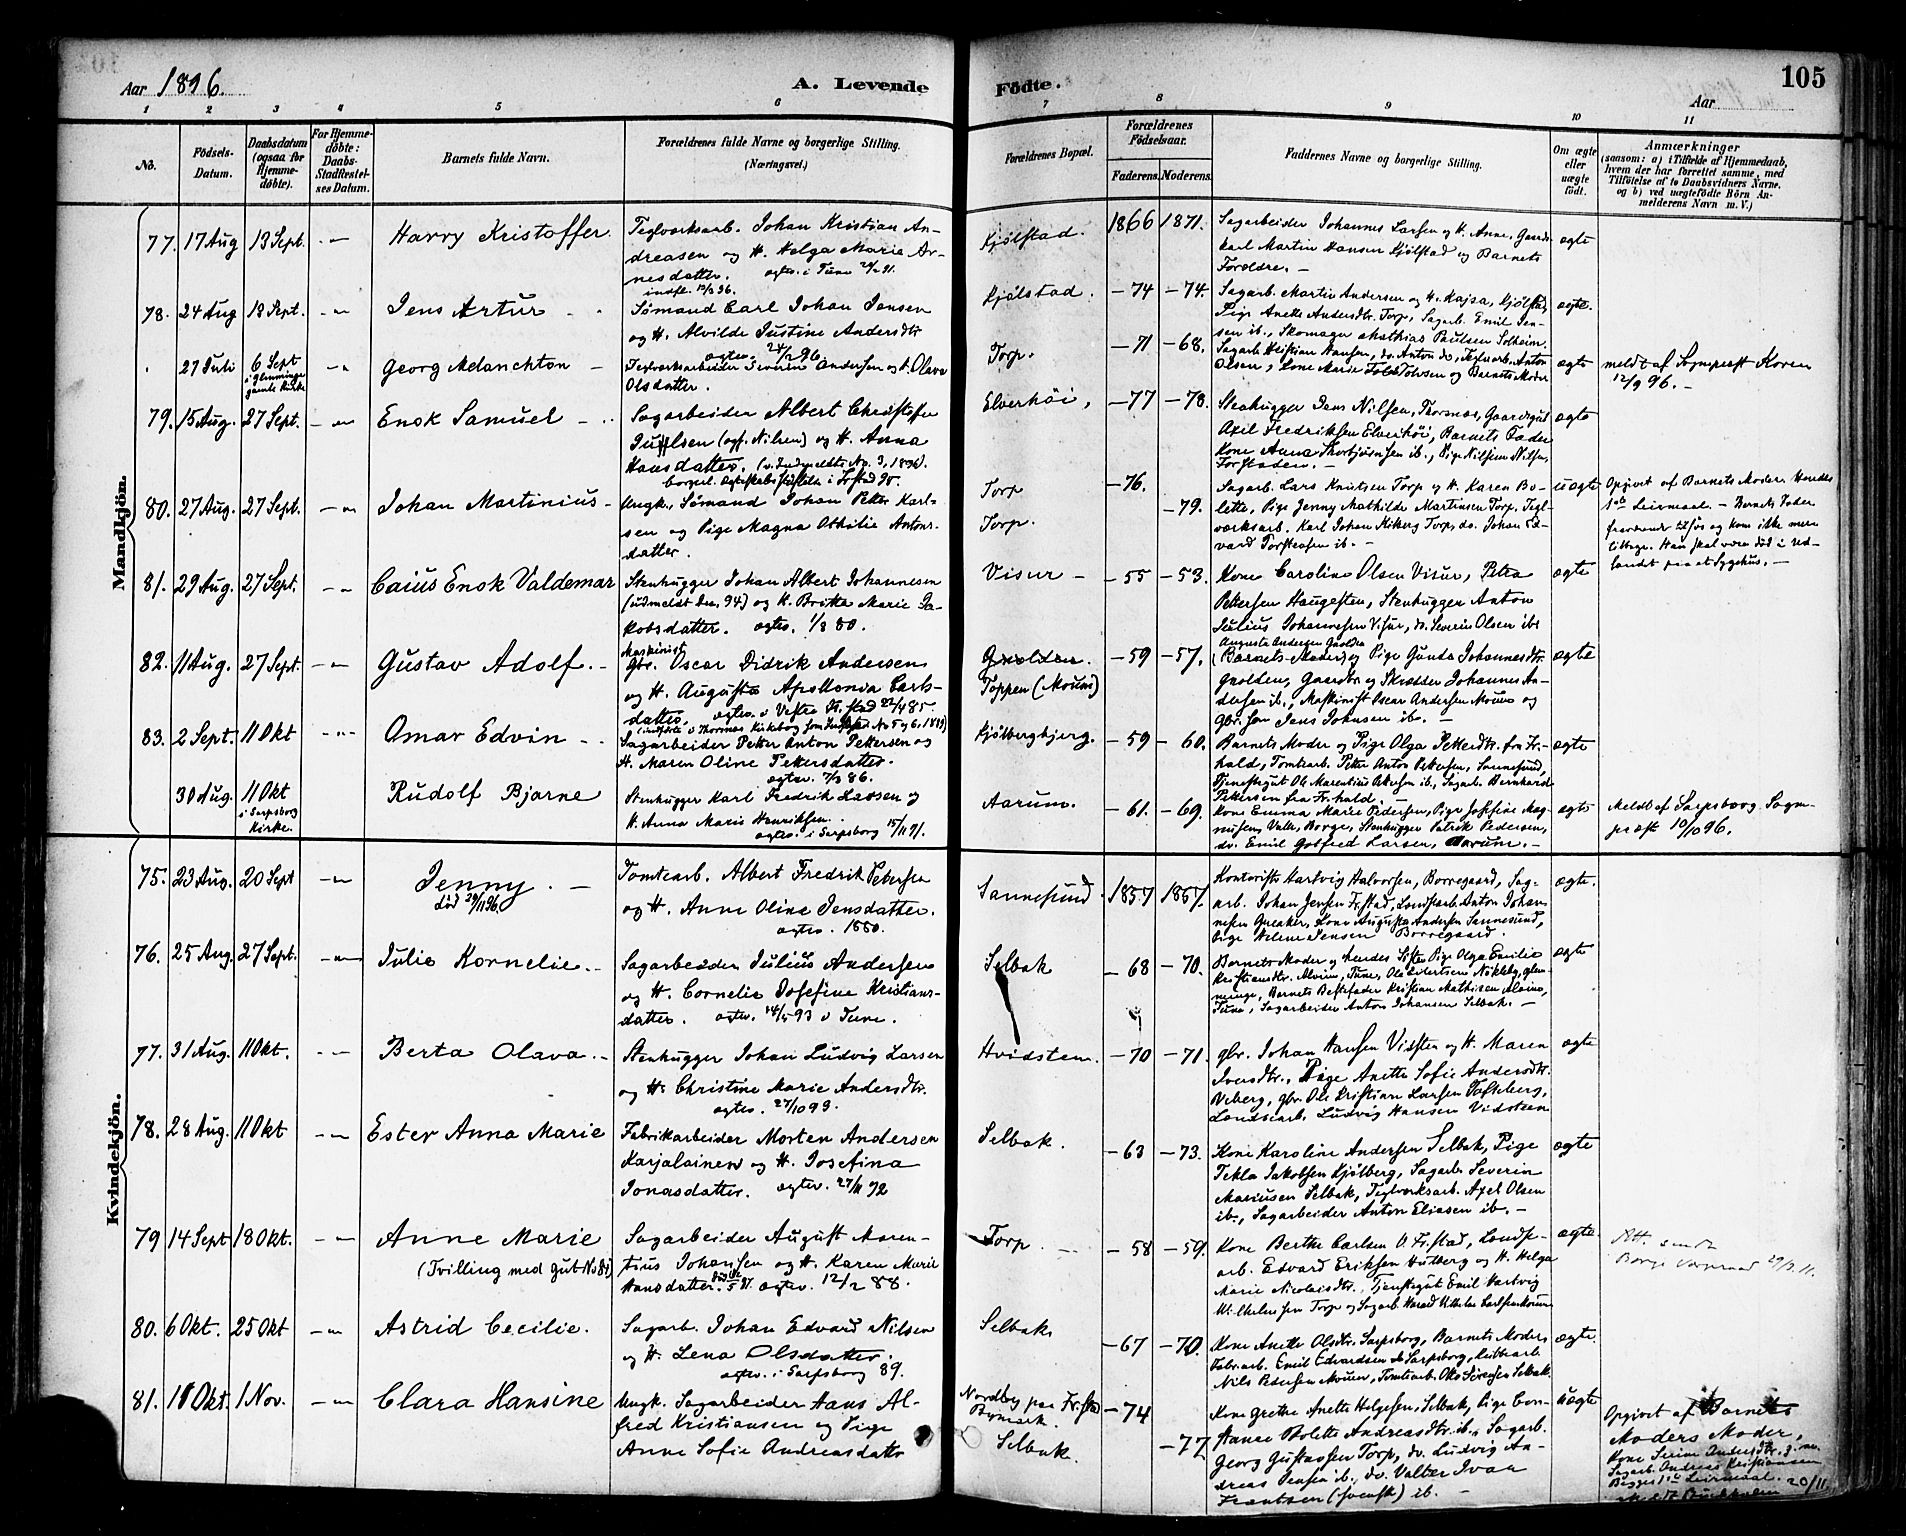 Aar 1896.
A. Levende
Fødte.
105
Aar
1 2 3 4 5 6 7 8 9 10 11
No.
Fødsels-Datum.
Daabsdatum (ogsaa for Hjemme-døbte).
For Hjemme-døbte: Daabs-Stadfæstel-ses Datum.
Barnets fulde Navn.
Forældrenes fulde Navne og borgerlige Stilling. (Næringsvei.)
Forældrenes Bopæl.
Forældrenes Fødselsaar.
Faderens. Moderens.
Faddernes Navne og borgerlige Stilling.
Om ægte eller uægte født.
Anmærkninger
(saasom: a) i Tilfælde af Hjemmedaab,
hvem der har forrettet samme, med
Tilføielse af to Daabsvidners Navne,
og b) ved uægtefødte Børn An-
melderens Navn m. V.)
Mandkjøn.
77. 17 Aug 13 Sept. Harry Kristoffer
Teglværksarb. Johan Kristian An-
dreasen og H. Helga Marie Ar-
nesdatter.
Kjølstad. 1866 1871.
Sagarbeider Johannes Larsen og H. Anne, Gaards-
karl Martin Hansen Kjølstad og Barnets
Forældre. ægte
78. 24 Aug 13 Sept. Jens Artur
Sømand Carl Johan Jensen
og H. Alvilde Justine Andersdtr
ægtev. 24/2 96
Kjølstad. -74 -74.
Sagarb. Martin Andersen og H. Kajsa, Kjølstad,
Pige Anette Andersdtr. Torp, Sagarb. Emil Jen-
sen ib., Skomager Mathias Paulsen Solheim. ægte.
27 Juli 6 Sept i Glemminge gamle Kirke Georg Melanchton
Teglværksarbeider Severin Andersen og H. Olava
Olsdatter.
Torp. -71 -68.
Sagarb. Kristian Hansen, do. Anton do, Teglvarb. Anton
Olsen, Kone Marie Tollefsen og Barnets Moder ægte
meldt af Sognepræst Koren
12/9 96.
79. 15 Aug. 27 Sept. Enok Samuel
Sagarbeider Albert Christofer
Juulsen (opf. Nilsen) og H. Anna
Hansdatter. (v. Indmeldte No. 3, 1896).
Elverhøi, -77 -78.
Stenhugger Jens Nilsen, Thorsnæs, Gaardsgut
Axel Fredriksen Elverhøi, Barnets Fader
Kone Anna
ægte
80. 27 Aug. 27 Sept. Johan Martinius
Ungk., Sømand Johan Petter Karl-
sen og Pige Magna Othilie Antons-
datter.
Torp -76.
Torp. -79.
Sagarb. Lars Knutsen Torp og H. Karen Bo-
lette, Pige Jenny Mathilde Martinsen Torp, Tegl-
værksarb. Karl Johan Kiberg Torp, do. Johan Ed-
vard Torstensen ib. uægte
Opgivet af Barnets Moder. Hendes
1ste Leiermaal. Barnets Fader
fraværende tilsjøs og kom ikke mere
tilbage. Han skal være død i Ud-
landet paa et Sygehus.
81. 29 Aug. 27 Sept. Caius Enok Valdemar
Stenhugger Johan Albert Johannesen
(udmeldt Dec. 94) og H. Britta Marie Ja-
kobsdatter. ægtev. 1/8 80.
Visur -55 -53.
Kone Caroline Olsen Visur, Petra
Pettersen Haugesten, Stenhugger Anton
Julius Johannesen Visur, do. Severin Olsen ib. ægte
82. 11 Aug. 27 Sept. Gustav Adolf.
Maskinist
Gbr. Oscar Didrik Andersen
og H. Augusta Apollonia Carls-
datter. ægtev. i Vestre Fr.stad 22/4 85.
Gnolden.
Toppen (Moum) -59 -57.
Augusta Andersen Gnolden
(Barnets Moder) og Pige Gunda Johannesdtr.
Gnolden, Gaardbr. og Skrædder Johannes An-
dersen ib., Maskinist Oscar Andersen Moum og
gbr. søn Jens Johnsen ib. ægte
83. 2 Sept. 11 Okt Omar Edvin
Sagarbeider Petter Anton Pettersen og
H. Maren Oline Pettersdatter.
ægtev. 7/3 86.
Kjølbergbjerg. -59 -60.
Barnets Moder og Pige Olga Petterdtr. fra Fr.-
hald, Tomtearb. Petter Anton Pettersen, Sannesund,
Tjenestegut Ole Marentius Pettersen ib., Sagarb. Bernhard
Pettersen fra Fr.hald. ægte
30 Aug. 11 Okt i Sarpsborg Kirke. Rudolf Bjarne
Stenhugger Karl Fredrik Larsen og
H. Anna Marie Henriksen.
ægtev. i Sarpsborg 15/11 91.
Aarum. -61. -69.
Kone Emma Marie Pedersen, Pige Josefine Mag-
nusen, Valle, Borge, Stenhugger Patrik Pedersen,
do. Emil Gotfred Larsen, Aarum. ægte
Meldt af Sarpsborg Sogne-
præst 10/10 96.
Kvindekjøn.
75. 23 Aug. 20 Sept Jenny
død 29/11 96.
Tomtearb. Albert Fredrik Petersen
og H. Anne Oline Jensdatter.
ægtev. 1880.
Sannesund. 1857 1857.
Kontorist Hartvig Halvorsen, Borregaard, Sag-
arb. Johan Jensen Fr.stad, Landsarb. Anton Johan-
nesen Greaker, Kone Augusta Andersen Sannesund,
Pige Helene Jensen Borregaard. ægte.
76. 25 Aug. 27 Sept. Julie Kornelie
Sagarbeider Julius Andersen
og H. Cornelie Josefine Kristians-
datter. ægtev. 14/5 93 i Tune.
Selbak -68 -70.
Barnets Moder og hendes Søster Pige Olga Emilie
Kristiansdtr. Alvim, Tune, Ole Edvartsen Nøkleby, Glem-
minge, Barnets Bestefader Kristian Mathisen Alvim,
Tune, Sagarbeider Anton Johansen Selbak. ægte
77. 31 Aug. 11 Okt. Berta Olava
Stenhugger Johan Ludvig Larsen
og H. Christine Marie Andersdtr.
ægtev. 27/10 93.
Hvidsten. -70 -71.
Gbr. Johan Hansen Vidsten og H. Maren
Iversdtr., Pige Anette Sofie Andersdtr.
Veberg, gbr. Ole Kristian Larsen Tofteberg,
Landsarb. Ludvig Hansen Vidsteen ægte
78. 28 Aug. 11 Okt Ester Anna Marie
Fabrikarbeider Morten Andersen
Karjalainen og H. Josefina
Jonasdatter. ægtev. 27/11 92
Selbak. -63 -73.
Kone Karoline Andersen Selbak, Pige
Tekla Jakobsen Kjølberg, Sagarb. Severin
Mariusen Selbak, Teglværksarb. Axel Olsen
ib., Sagarbeider Anton Eliasen ib. ægte
79 14 Sept 18 Okt. Anne Marie
(Tvilling med Gut No 84)
Sagarbeider August Maren-
tius Johansen og H. Karen Marie
Hansdatter. ægtev. 12/2 88.
Torp -58 -59.
Kone Berthe Carlsen V. Fr.stad, Lands-
arb. Edvard Eriksen Hutberg og H. Helga
Marie Nicolaisdtr., Tjenestegut Emil Hartvig
Wilhelmsen Torp og Sagarb. Harald Vilhelm Carlsen Moum ægte.
Att. sendt
29/3 11.
80. 6 Okt. 25 Okt Astrid Cecilie.
Sagarb. Johan Edvard Nilsen
og H. Lena Olsdatter.
ægtev. i Sarpsborg 89.
Selbak -67 -70.
Kone Anette Olsdtr. Sarpsborg, Barnets Moder,
Fabr.arb. Emil Edvardsen Sarpsborg,
Nils Pedersen Moum, Tomtearb. Otto Sørensen Selbak. ægte.
81. 11 Okt. 1 Nov. Clara Hansine
Ungk. Sagarbeider Hans Al-
fred Kristiansen og Pige
Anne Sofie Andreasdatter
Nordby paa Fr.stad
Bymark. -74
Selbak. -77
Kone Grethe Anette Helgesen, Selbak, Pige Con-
stance Bolette Andreasdtr. ib., Sagarb.
Georg Gustavsen Torp, do. Ludvig An-
dreas Jensen ib., do. Valter Ivan
Frantsen (svensk) ib. uægte
Opgivet af Barnets
Moders Moder,
Kone Serine Andersdtr, g. m.
Sagarb. Andreas Kristiansen
Begges 1ste Leiermaal.
20/11